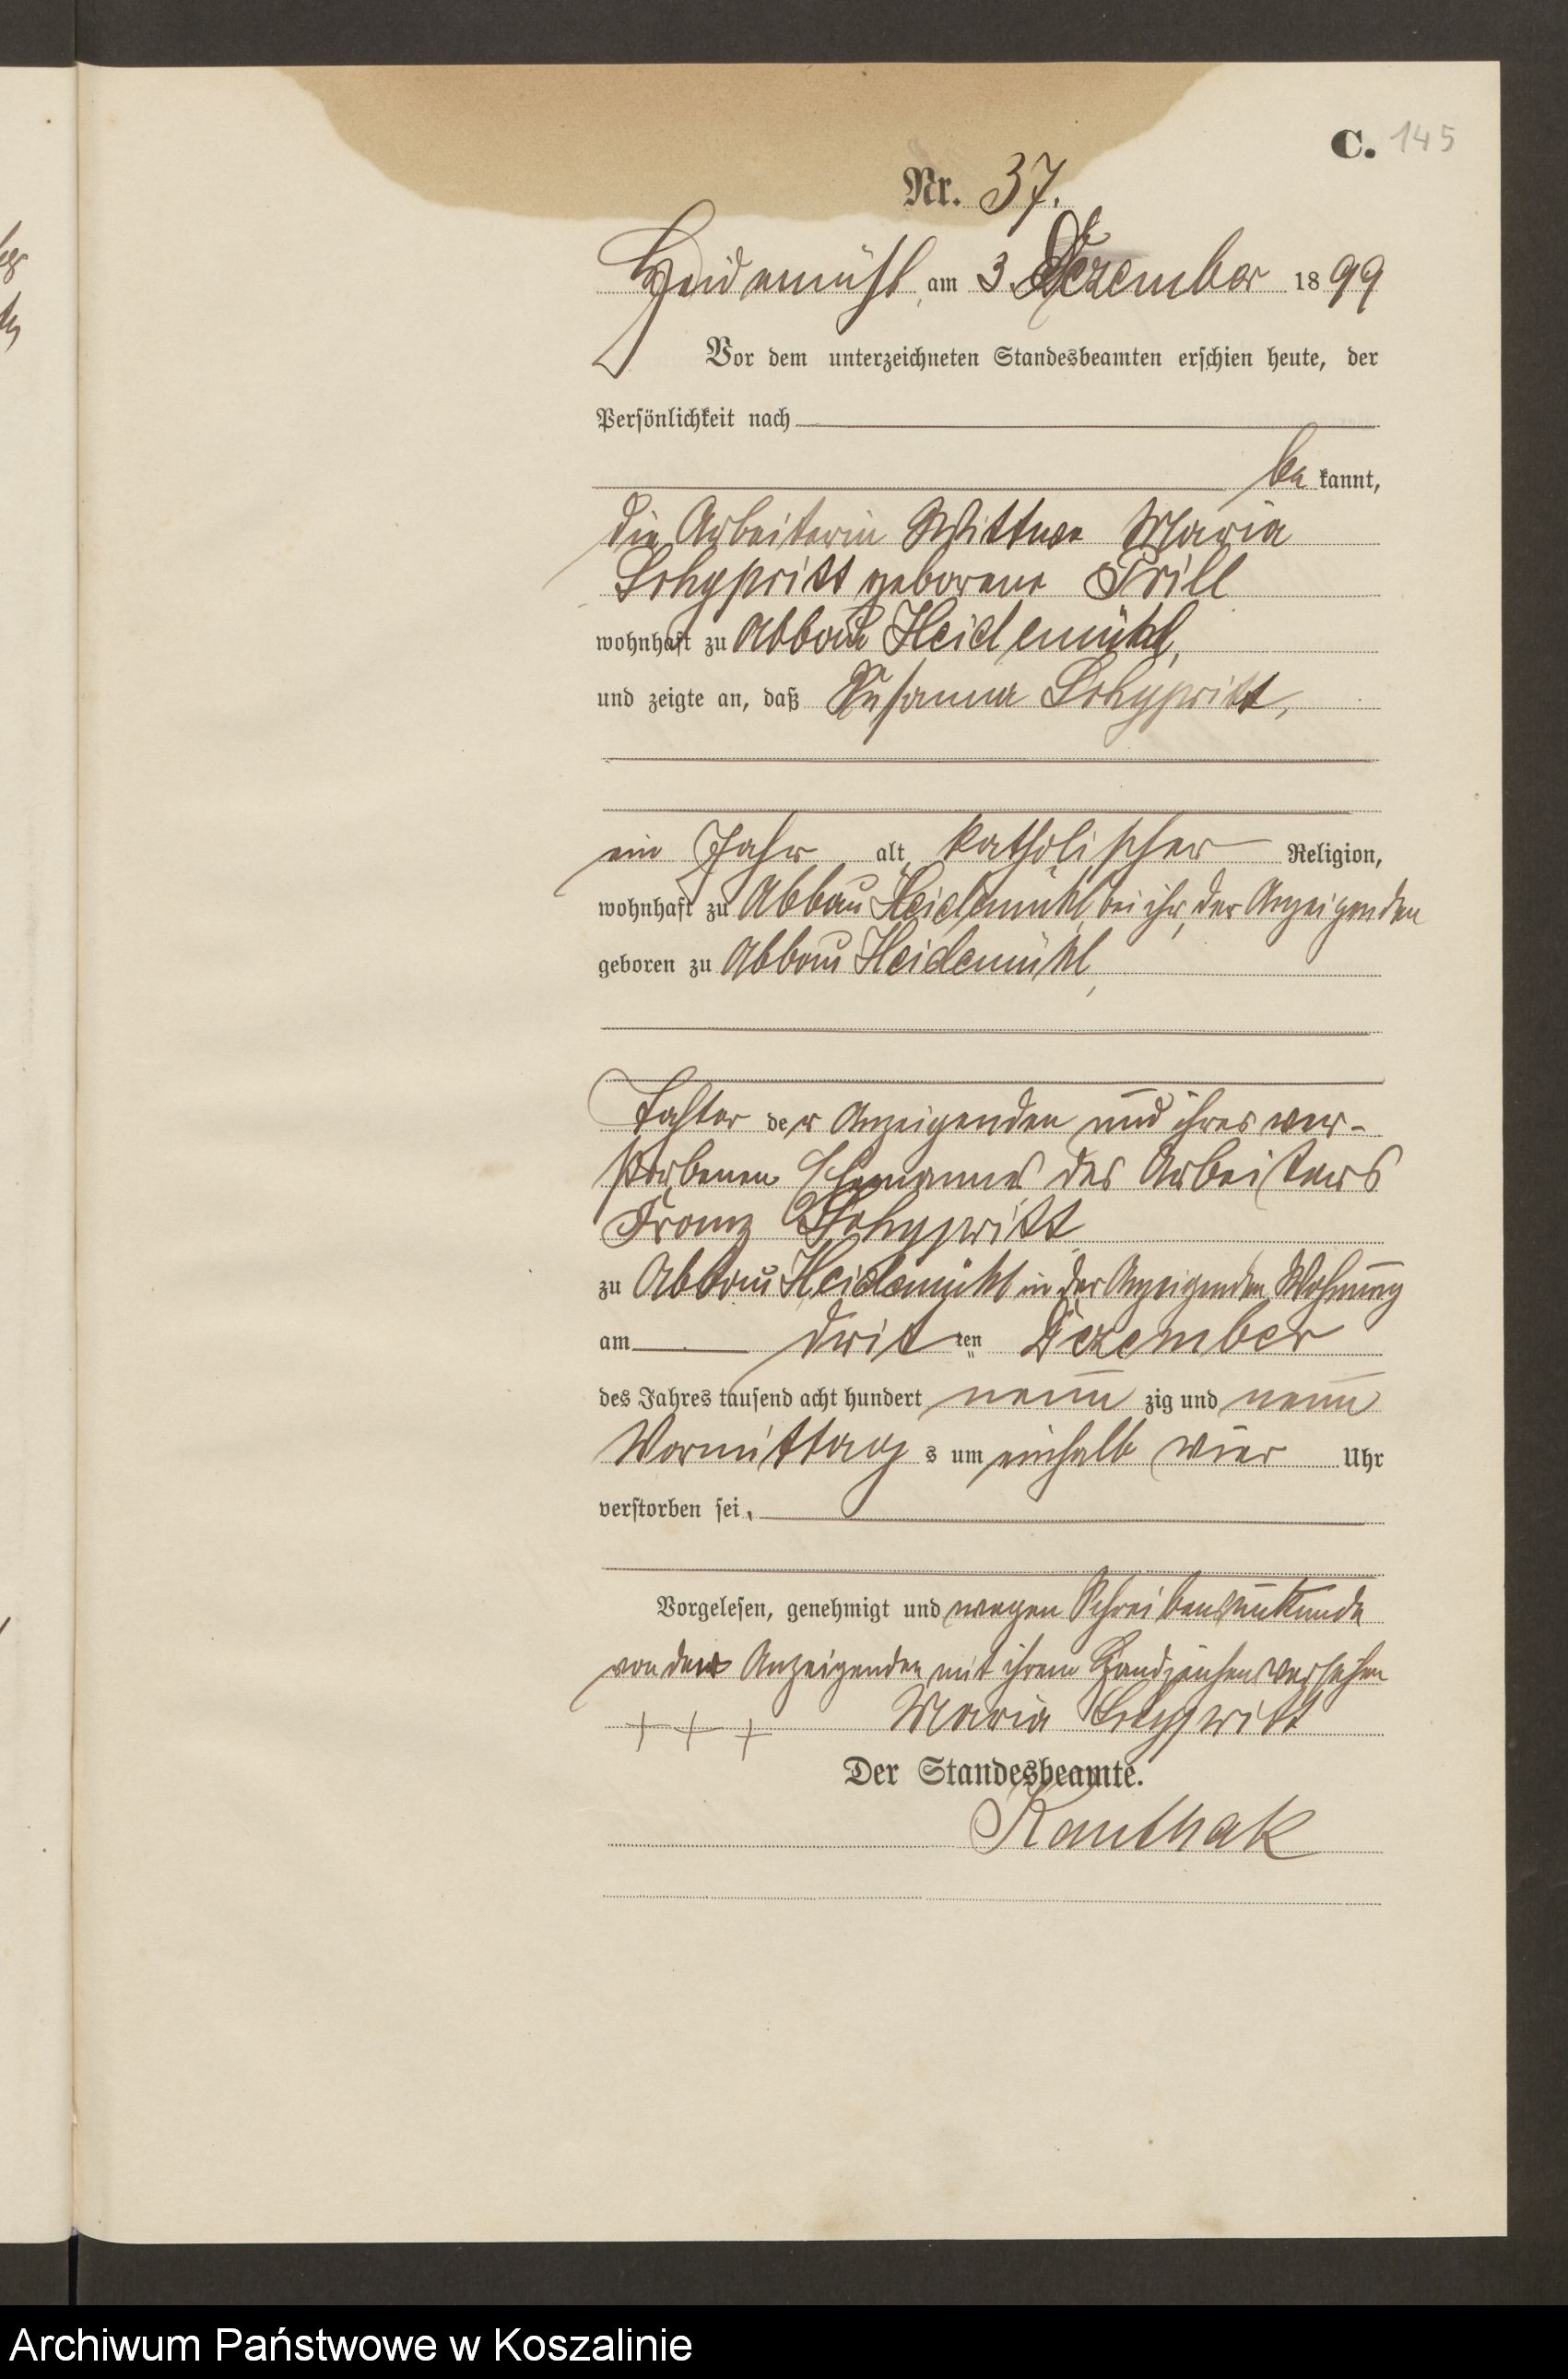 C. 145
Nr. 37.
Heidemühl am 3. Dezember 1899
Vor dem unterzeichneten Standesbeamten erschien heute, der
Persönlichkeit nach
be kannt,
die Arbeiterin Wittwe Maria
geborene Prill
wohnhaft zu Abbau Heidemühl,
und zeigte an, daß Susanna
ein Jahr alt, katholischer Religion,
wohnhaft zu Abbau Heidemühl, bei ihr, der Anzeigenden
geboren zu Abbau Heidemühl,
Tochter der Anzeigenden und ihres ver-
storbenen Ehemannes des Arbeiters
Franz
zu Abbau Heidemühl in der Anzeigenden Wohnung
am dritten Dezember
des Jahres tausend acht hundert neun zig und neun
Vormittags um einhalb vier Uhr
verstorben sei.
Vorgelesen, genehmigt und wegen Schreibensunkunde
von der Anzeigenden mit ihrem Handzeichen versehen
+ + + Maria
Der Standesbeamte.
Kanthak
Archiwum Państwowe w Koszalinie